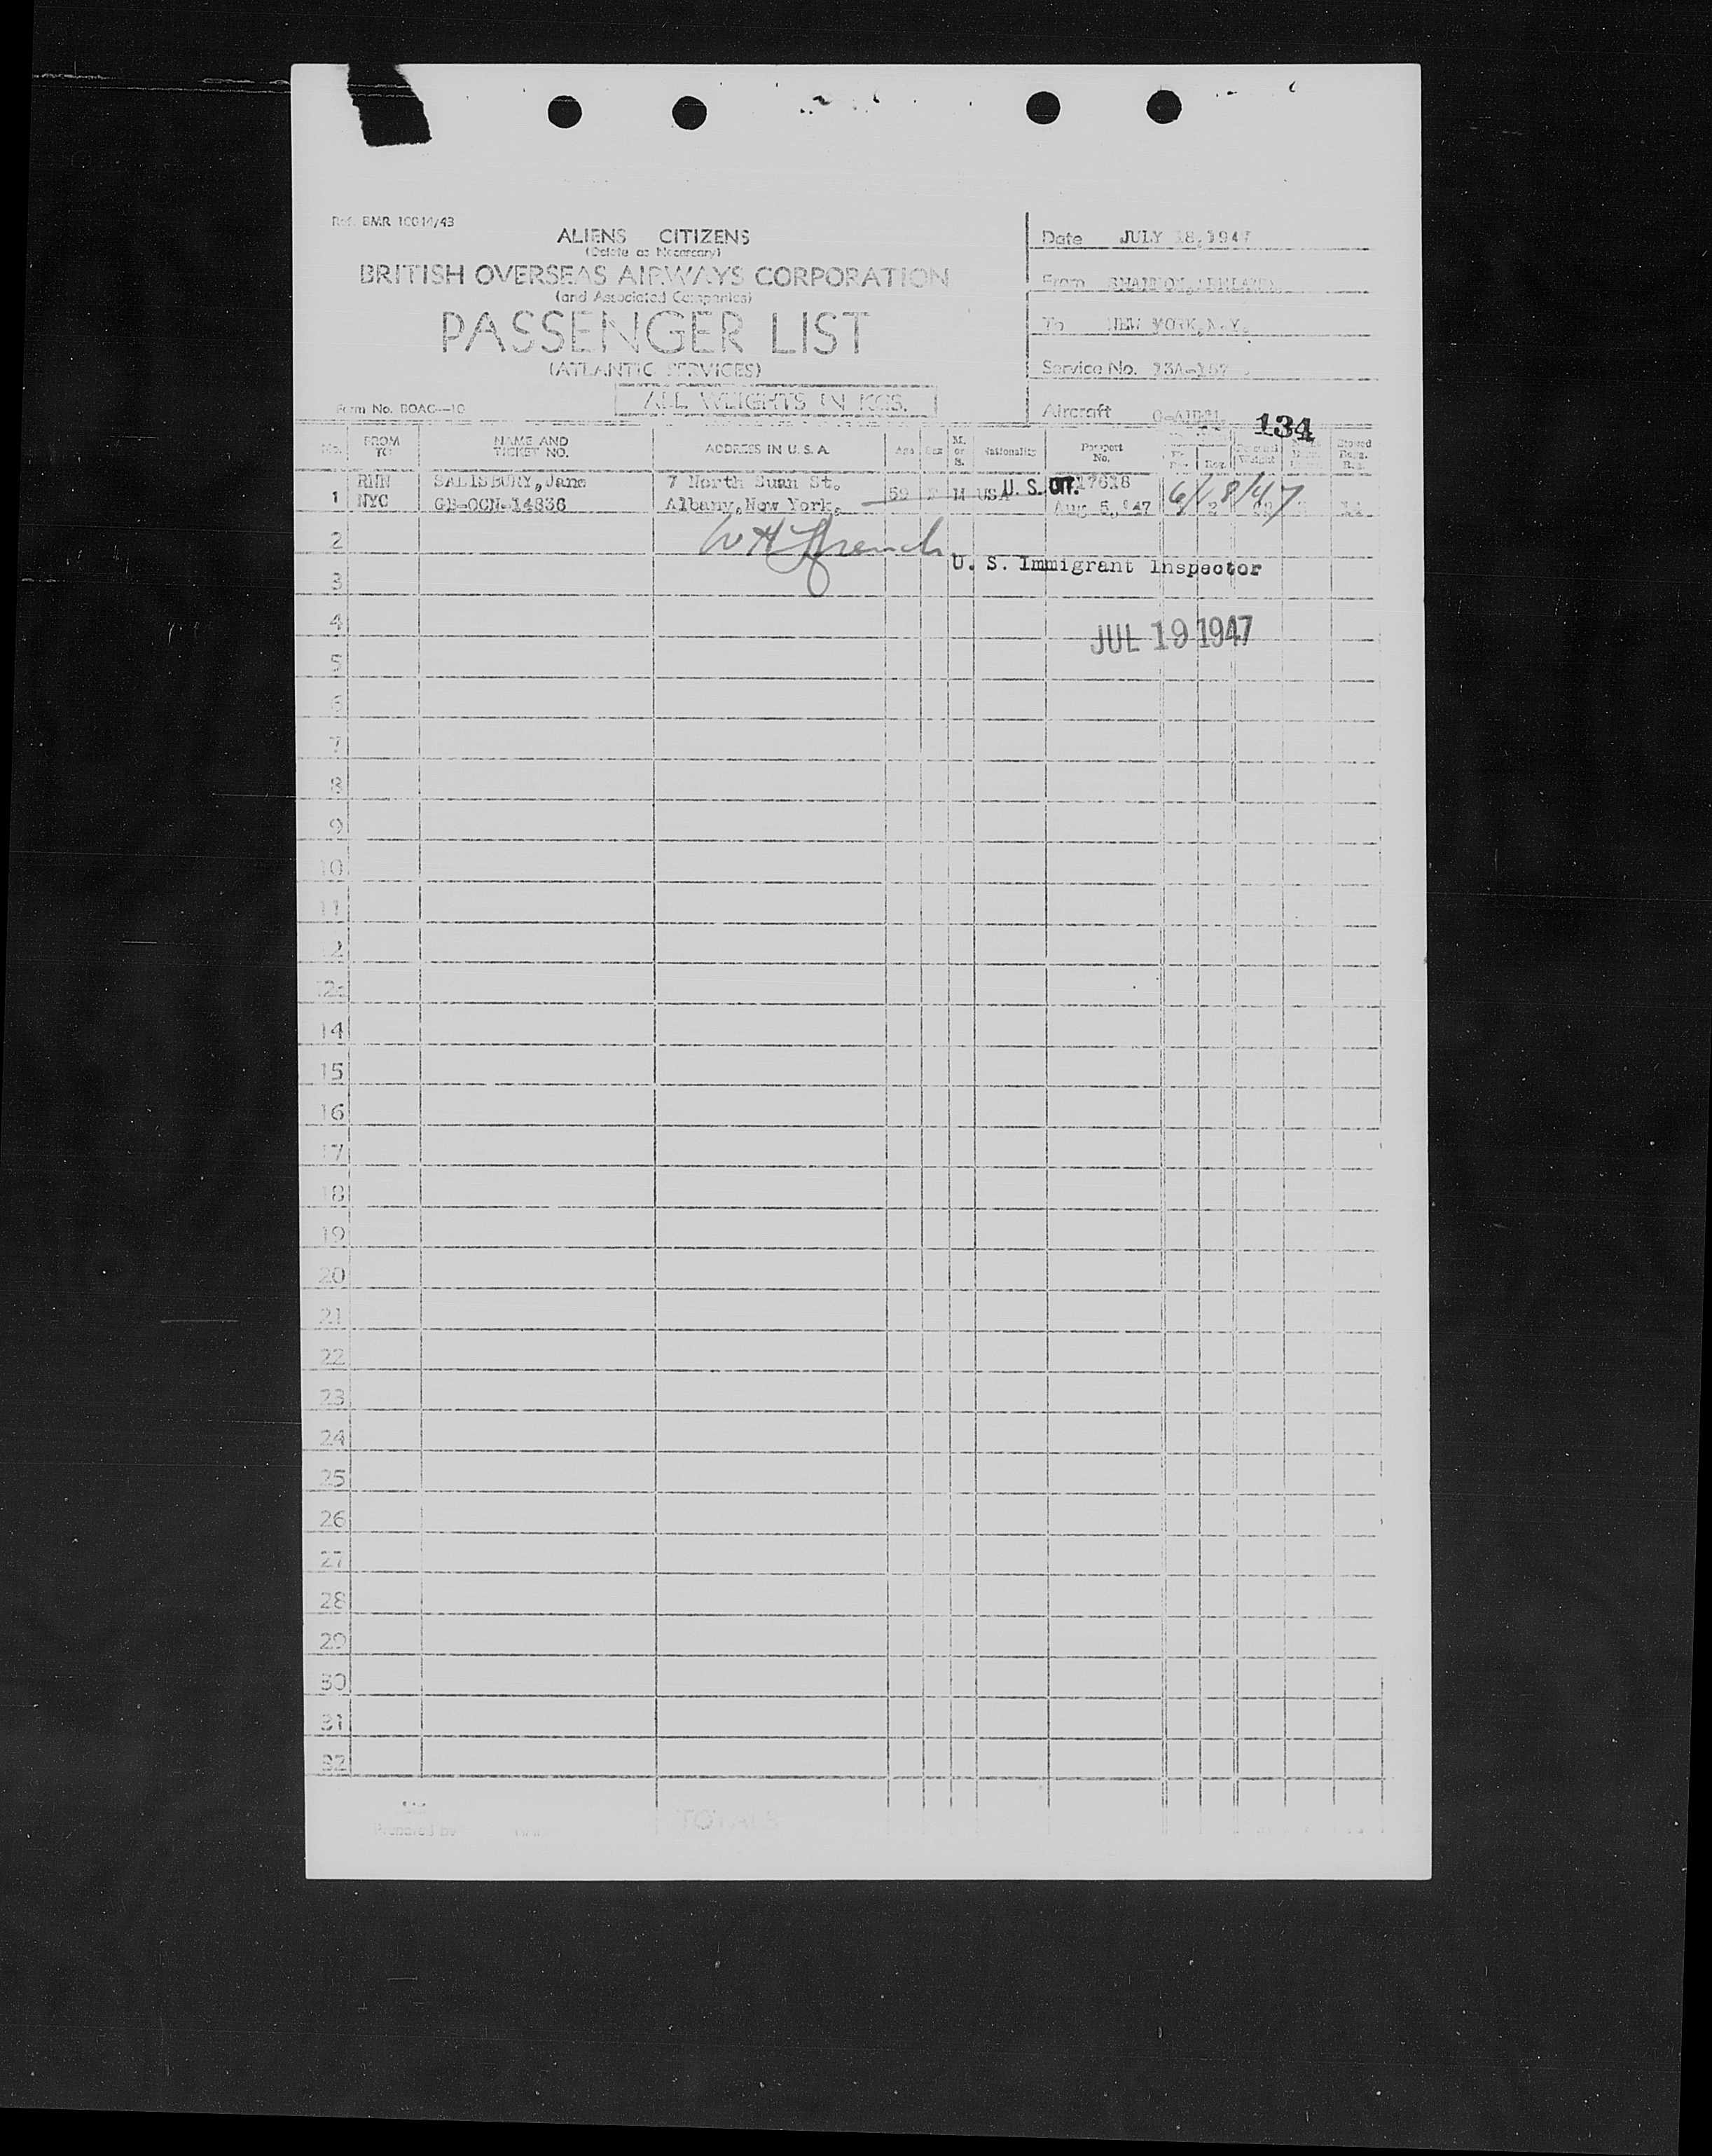 Ref. BMR 10014/43
ALIENS CITIZENS
(Delete as Necessary)
BRITISH OVERSEAS AIRWAYS CORPORATION
(and Associated Companies)
PASSENGER LIST
(ATLANTIC SERVICES)
ALL WEIGHTS IN KGS.
Form No. BOAC—10
Date JULY 18,1947
From SHANNON,IRELAND
To NEW YORK,N.Y.
Service No.
Aircraft
134
No. FROM TO NAME AND TICKET NO. ADDRESS IN U. S. A. Age Sex M. or S. Nationality Passport No.
RNN SALISBURY,Jane 7 North Swan St. 17616
1 NYC GB-OCN-14836 Albany,New York. 59 F M USA U. S. CIT. Aug 5,'47 6/18/47
2 W H French
U. S. Immigrant Inspector
3
4
JUL 19 1947
5
6
7
8
9
10
11
12
13
14
15
16
17
18
19
20
21
22
23
24
25
26
27
28
29
30
31
32
Prepared by
TOTALS